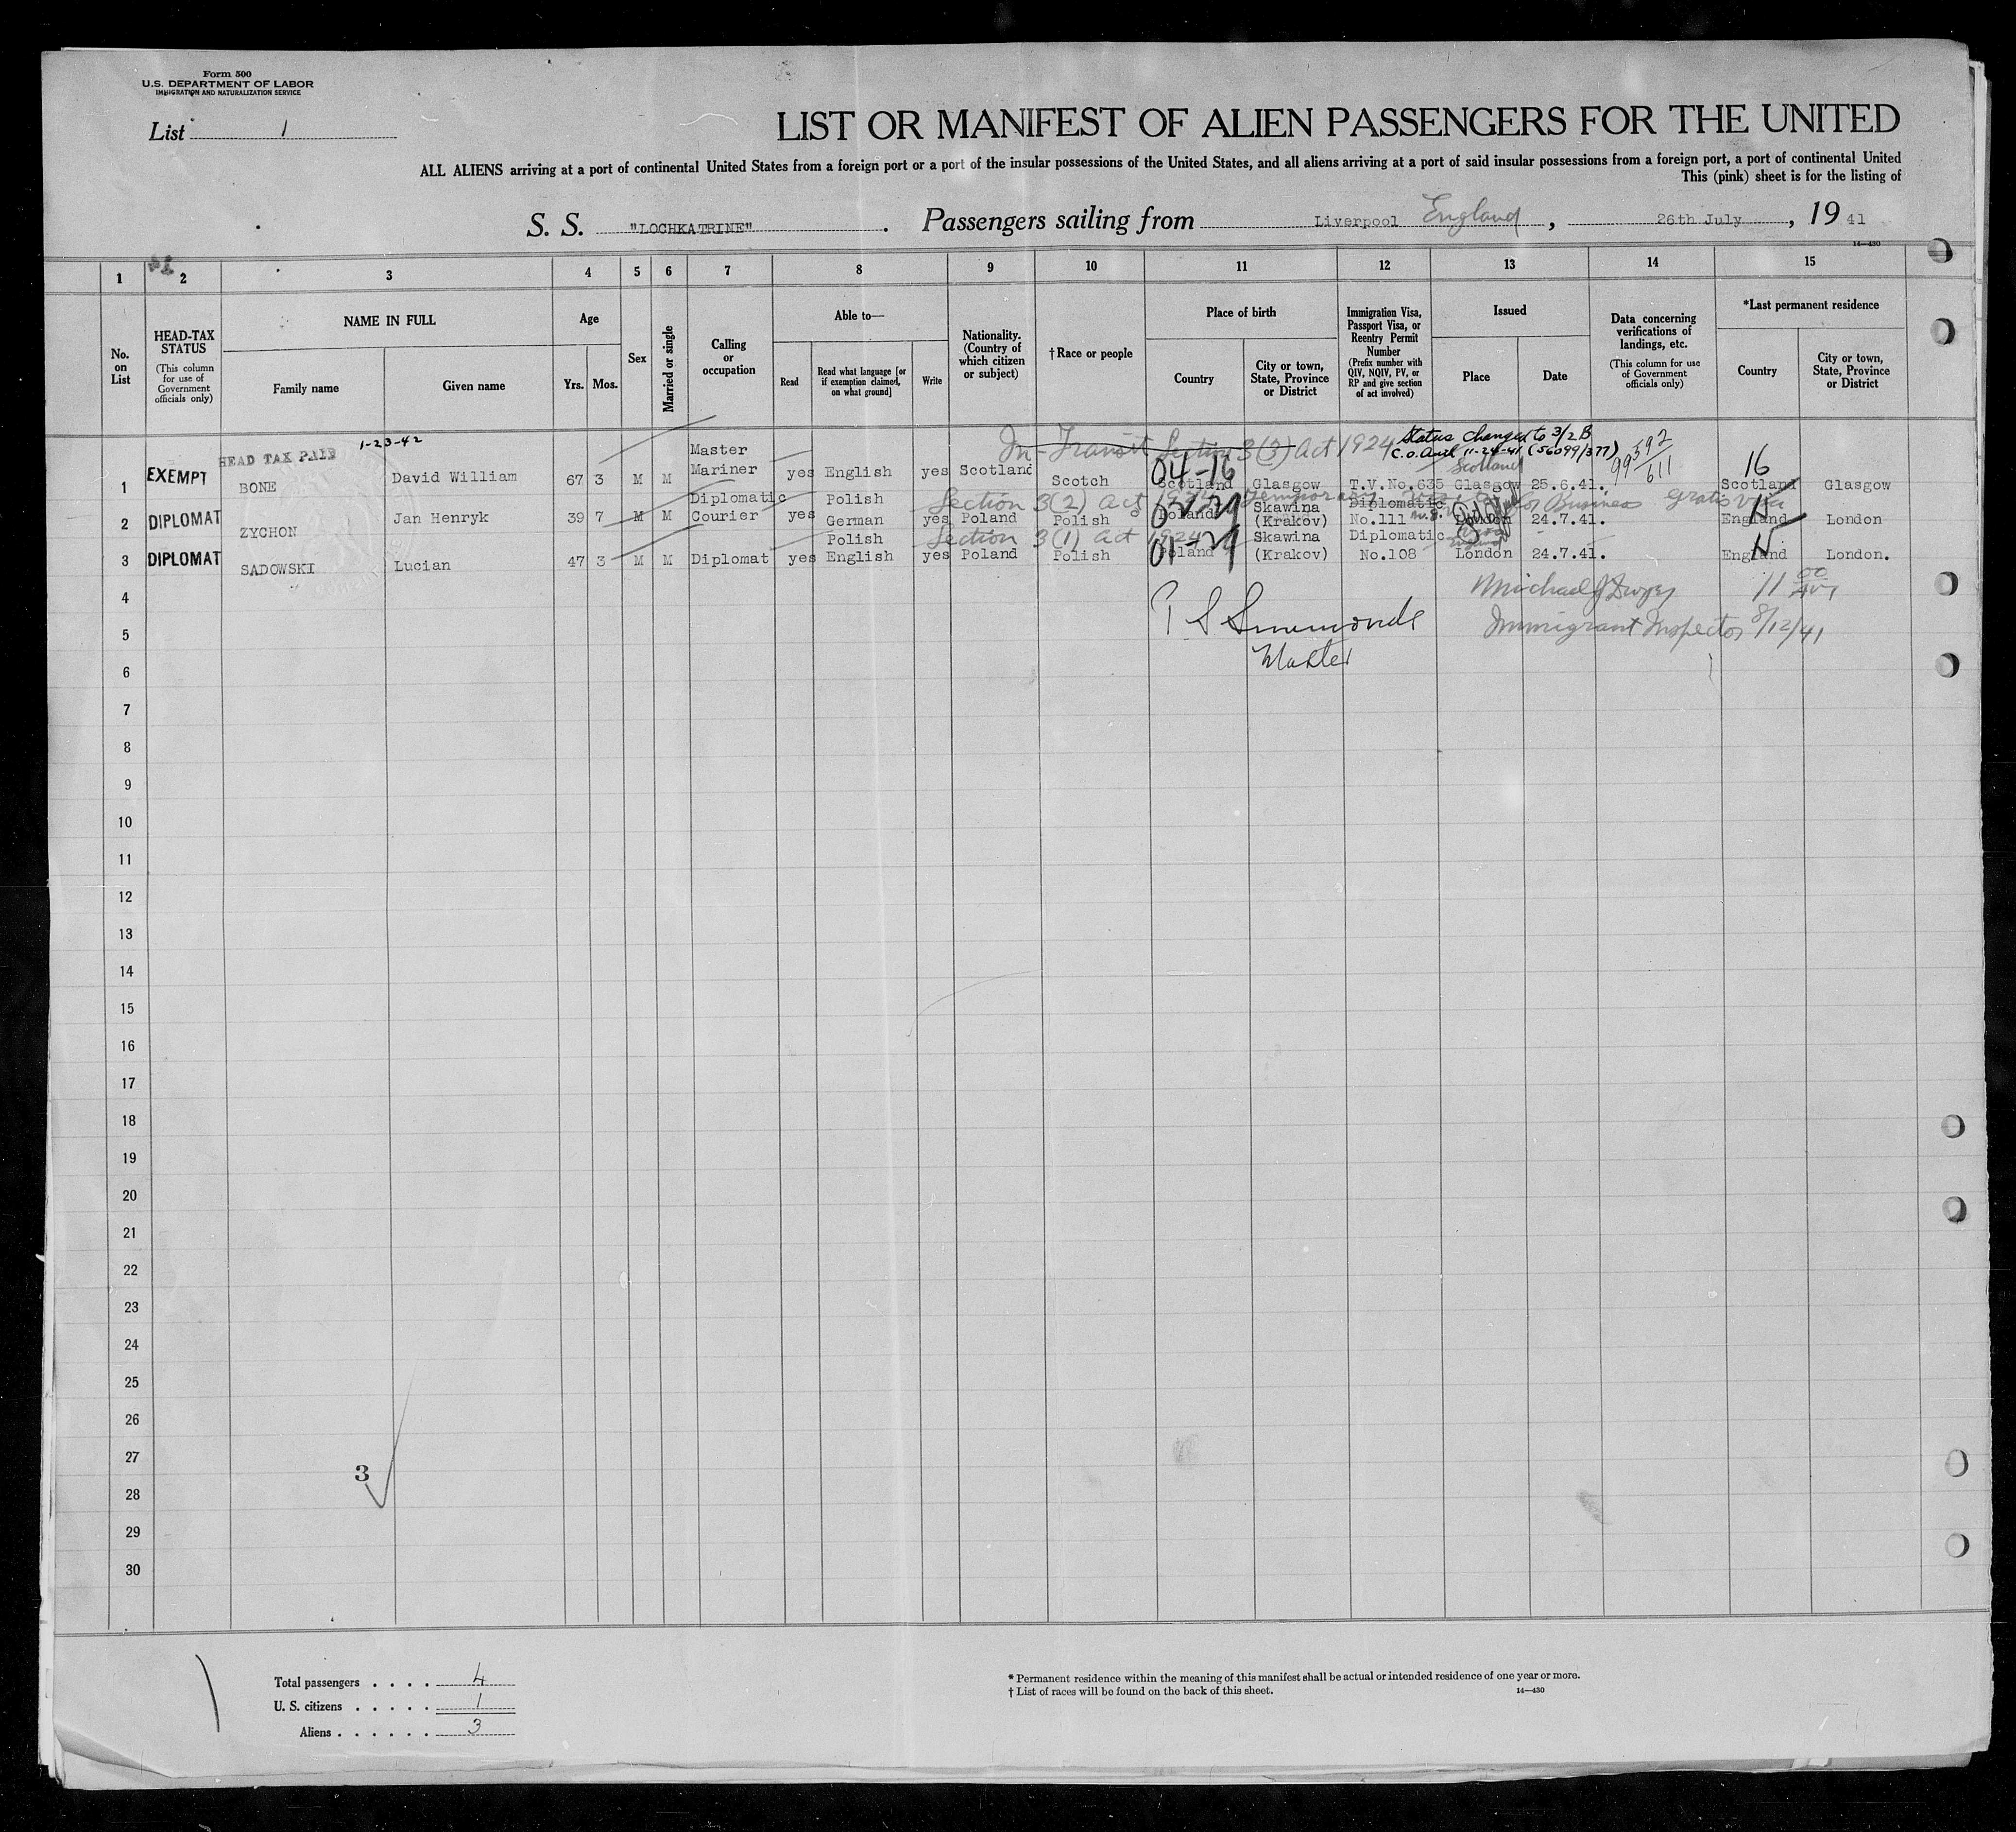 Form 500
U.S. DEPARTMENT OF LABOR
IMMIGRATION AND NATURALIZATION SERVICE
List 1
LIST OR MANIFEST OF ALIEN PASSENGERS FOR THE UNITED
ALL ALIENS arriving at a port of continental United States from a foreign port or a port of the insular possessions of the United States, and all aliens arriving at a port of said insular possessions from a foreign port, a port of continental United
This (pink) sheet is for the listing of
S. S. "LOCHKATRINE". Passengers sailing from Liverpool England, 26th July, 19 41
14—430
1 2 3 4 5 6 7 8 9 10 11 12 13 14 15
No. on List
HEAD-TAX STATUS
(This column for use of Government officials only)
NAME IN FULL
Family name Given name
Age
Yrs. Mos.
Sex
Married or single
Calling or occupation
Able to—
Read
Read what language [or if exemption claimed, on what ground]
Write
Nationality. (Country of which citizen or subject)
†Race or people
Place of birth
Country
City or town, State, Province or District
Immigration Visa, Passport Visa, or Reentry Permit Number
(Prefix number with QIV, NQIV, PV, or RP and give section of act involved)
Issued
Place Date
Data concerning verifications of landings, etc.
(This column for use of Government officials only)
*Last permanent residence
Country
City or town, State, Province or District
HEAD TAX PAID 1-23-42
In-Transit Section 3(3) Act 1924 Status changed to 3/2 B
C.O. 11-24-41 (56099/377)
99592/611
1 EXEMPT BONE David William 67 3 M M Master Mariner yes English yes Scotland Scotch 04-16 Scotland Glasgow T.V.No.635 Glasgow Scotland 25.6.41. 16 Scotland Glasgow
Section 3(2) Act 1924 Temporary Business Gratis Visa
2 DIPLOMAT ZYCHON Jan Henryk 39 7 M M Diplomatic Courier yes Polish German yes Poland Polish Poland Skawina (Krakov) Diplomatic No.111 London 24.7.41. England London
Section 3(1) Act 1924
3 DIPLOMAT SADOWSKI Lucian 47 3 M M Diplomat yes Polish English yes Poland Polish Poland Skawina (Krakov) Diplomatic No.108 London 24.7.41. England London.
4
Michael J Dwyer 11 00
5
Simmonds
Immigrant Inspector 8/12/41
Master
6
7
8
9
10
11
12
13
14
15
16
17
18
19
20
21
22
23
24
25
26
27
3
28
29
30
Total passengers . . . . 4
U. S. citizens . . . . . 1
Aliens . . . . . . 3
* Permanent residence within the meaning of this manifest shall be actual or intended residence of one year or more.
† List of races will be found on the back of this sheet.
14—430